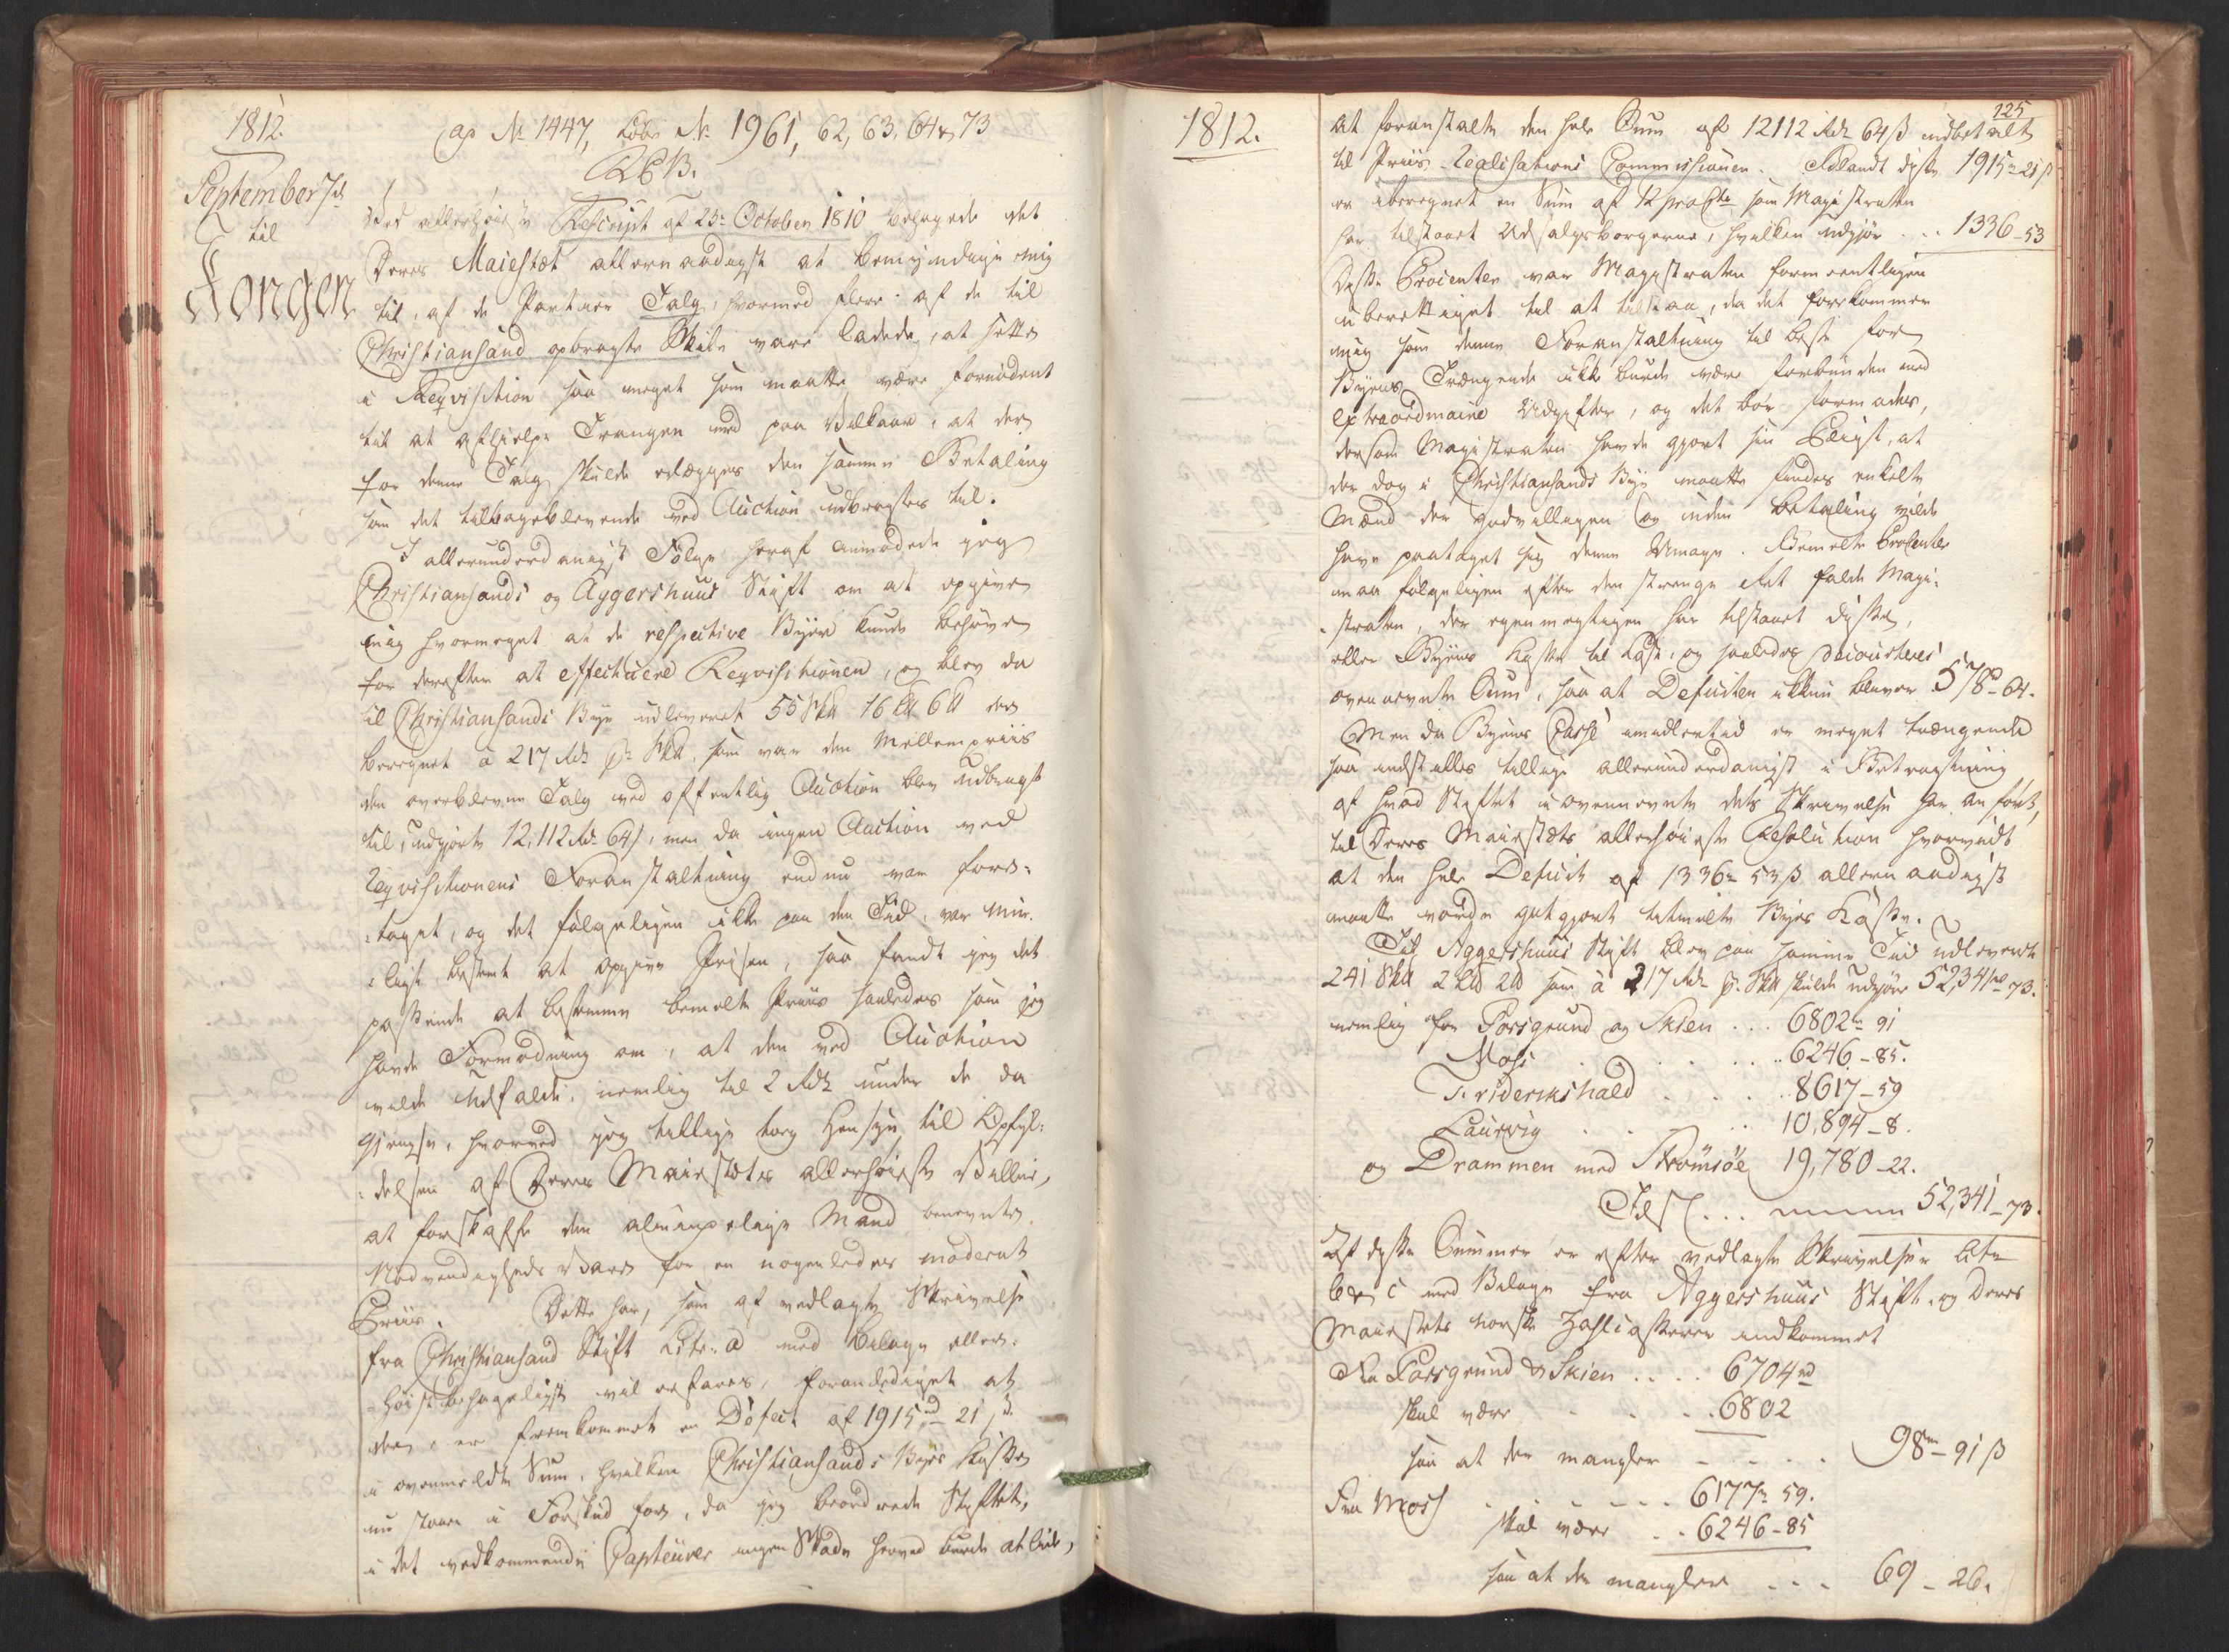 1812.
ap No 1447, Løbe No 1961, 62, 63, 64 & 73
R6B.
September 7de
til
Kongen
Ved allerhøieste Rescript af 25de October 1810 behagede det
Deres Maiestæt allernaadigst at bemyndige mig
til, af de Partier Talg, hvormed flere af de til
Christiansand opbragte Skibe vare ladede, at sette
i Reqvisition saa meget som maatte være fornødent
til at afhielpe Trangen med paa Vilkaar, at der
for denne Talg skulde erlægges den samme Betaling
som det tilbageblevende ved Auction udbragtes til.
I allerunderdanigst Følge heraf anmodede jeg
Christiansands og Aggershuus Stift om at opgive
mig hvormeget at de respective Byer kunde behøve
for derefter at effectuere Reqvisitionen, og blev da
til Christiansands Bye udleveret 55 Sk℔ 16 L℔ 6 ℔ der
beregnet à 217 Rdr pr Sk℔, som var den Mellempriis
den overblevne Talg ved offentlig Auction blev udbragt
til, udgjorte 12,112 Rdr 64 s, men da ingen Auction ved
Reqvisitionens Foranstaltning endnu var fore-
taget, og det følgeligen ikke paa den Tid var mue-
ligt bestemt at opgive Prisen, saa fandt jeg det
passende at bestemme bemelte Priis saaledes som jeg
havde Formodning om, at den ved Auction
vilde udfalde, nemlig til 2 Rdr under de da
gjengse, hvorved jeg tillige tog Hensyn til Opfyl-
delsen af Deres Maiestæts allerhøieste Villie,
at forskaffe den almindelige Mand benevnte
Nødvendigheds Vare for en nogenledes moderat
Priis. Dette har, som af vedlagte Skrivelse
fra Christiansand Stift Litr. a med Bilage aller-
høistbehageligst vil erfares, foranlediget at
der er fremkommet en Defect af 1915 rd 21 s
i ovenmeldte Sum, hvilken Christiansands Byes Kasse
nu staaer i Forskud for, da jeg beordrede Stiftet,
i det vedkommende Capteurer ingen Skade herved burde at lide,
1812.
125
at foranstalte den hele Sum af 12112 Rdr 64 ß indbetalt
til Priis-Realisations Commissionen. Iblandt disse 1915 - 21 ß
er iberegnet en Sum af 12 proCto som Magistraten
har tilstaaet Udsalgsborgerne, hvilken udgjør .. 1336 - 53
Disse Procenter var Magistraten formeentligen
uberettiget til at tilstaa, da det forekommer
mig som denne Foranstaltning til beste for
Byens Trængende ikke burde være forbunden med
extraordinaire Udgifter, og det bør formodes,
dersom Magistraten havde gjort sin Pligt, at
der dog i Christiansands Bye maatte findes enkelte
Mænd der godvilligen og uden Betaling vilde
have paataget sig denne Umage. Bemelte Procenter
maa følgeligen efter den strenge Ret falde Magi-
straten, der egenmegtigen har tilstaaet disse,
eller Byens Kasse til Last, og saaledes decourteres
ovennevnte Sum, saa at Deficiten ikkun bliver 578 rd - 64.
Men da Byens Casse imidlertid er meget trængende
saa indstilles tillige allerunderdanigst i Betragtning
af hvad Stiftet i ovennevnte dets Skrivelse har anført,
til Deres Maiestæts allerhøieste Resolution hvorvidt
at den hele Deficit af 1336 - 53 ß allernaadigst
maatte vorde godtgjort bemelte Byes Kasse.
Til Aggershuus Stift blev paa samme Tid udleveret
241 Sk℔ 2 L℔ 2 ℔ som à 217 Rdr pr. Sk℔ skulde udgjøre 52,341 rd 73.
nemlig for Porsgrund og Skien ... 6802 rd 91
Moss . . . . . 6246 - 85.
Friderikshald . . . . 8617 - 59
Laurvig . . . . 10,894 - 8.
og Drammen med Strømsøe 19,780 - 22.
Tils ... 52,341 - 73.
Af disse Summer er efter vedlagte Skrivelser Litr
b & c med Bilage fra Aggershuus Stift og Deres
Maiestæts norske Zahlcasserer indkommet
Fra Porsgrund & Skien .... 6704 rd
skal være . . . . 6802
saa at der mangler - - - . 98 rd - 91 ß
Fra Moss . . - - - - . 6177 - 59.
skal være . . 6246 - 85
saa at der mangler . . . 69 - 26.